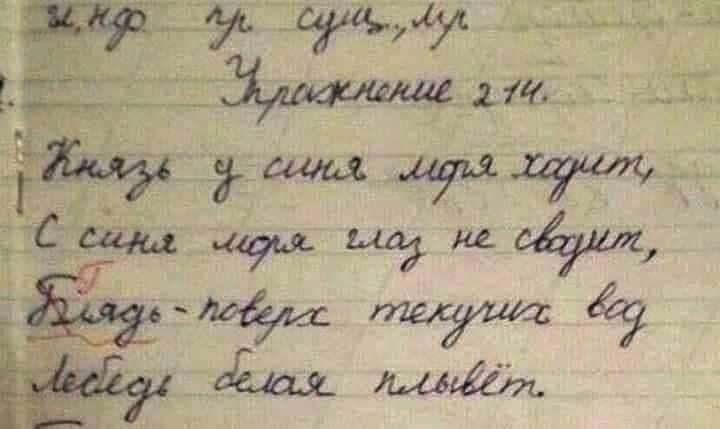 гл, н.ф пр. сущ., м.р
Упражнение 214.
Князь у синя моря ходит,
С синя моря глаз не сводит,
Г
Блядь - поверх текучих вод
Лебедь белая плывёт.